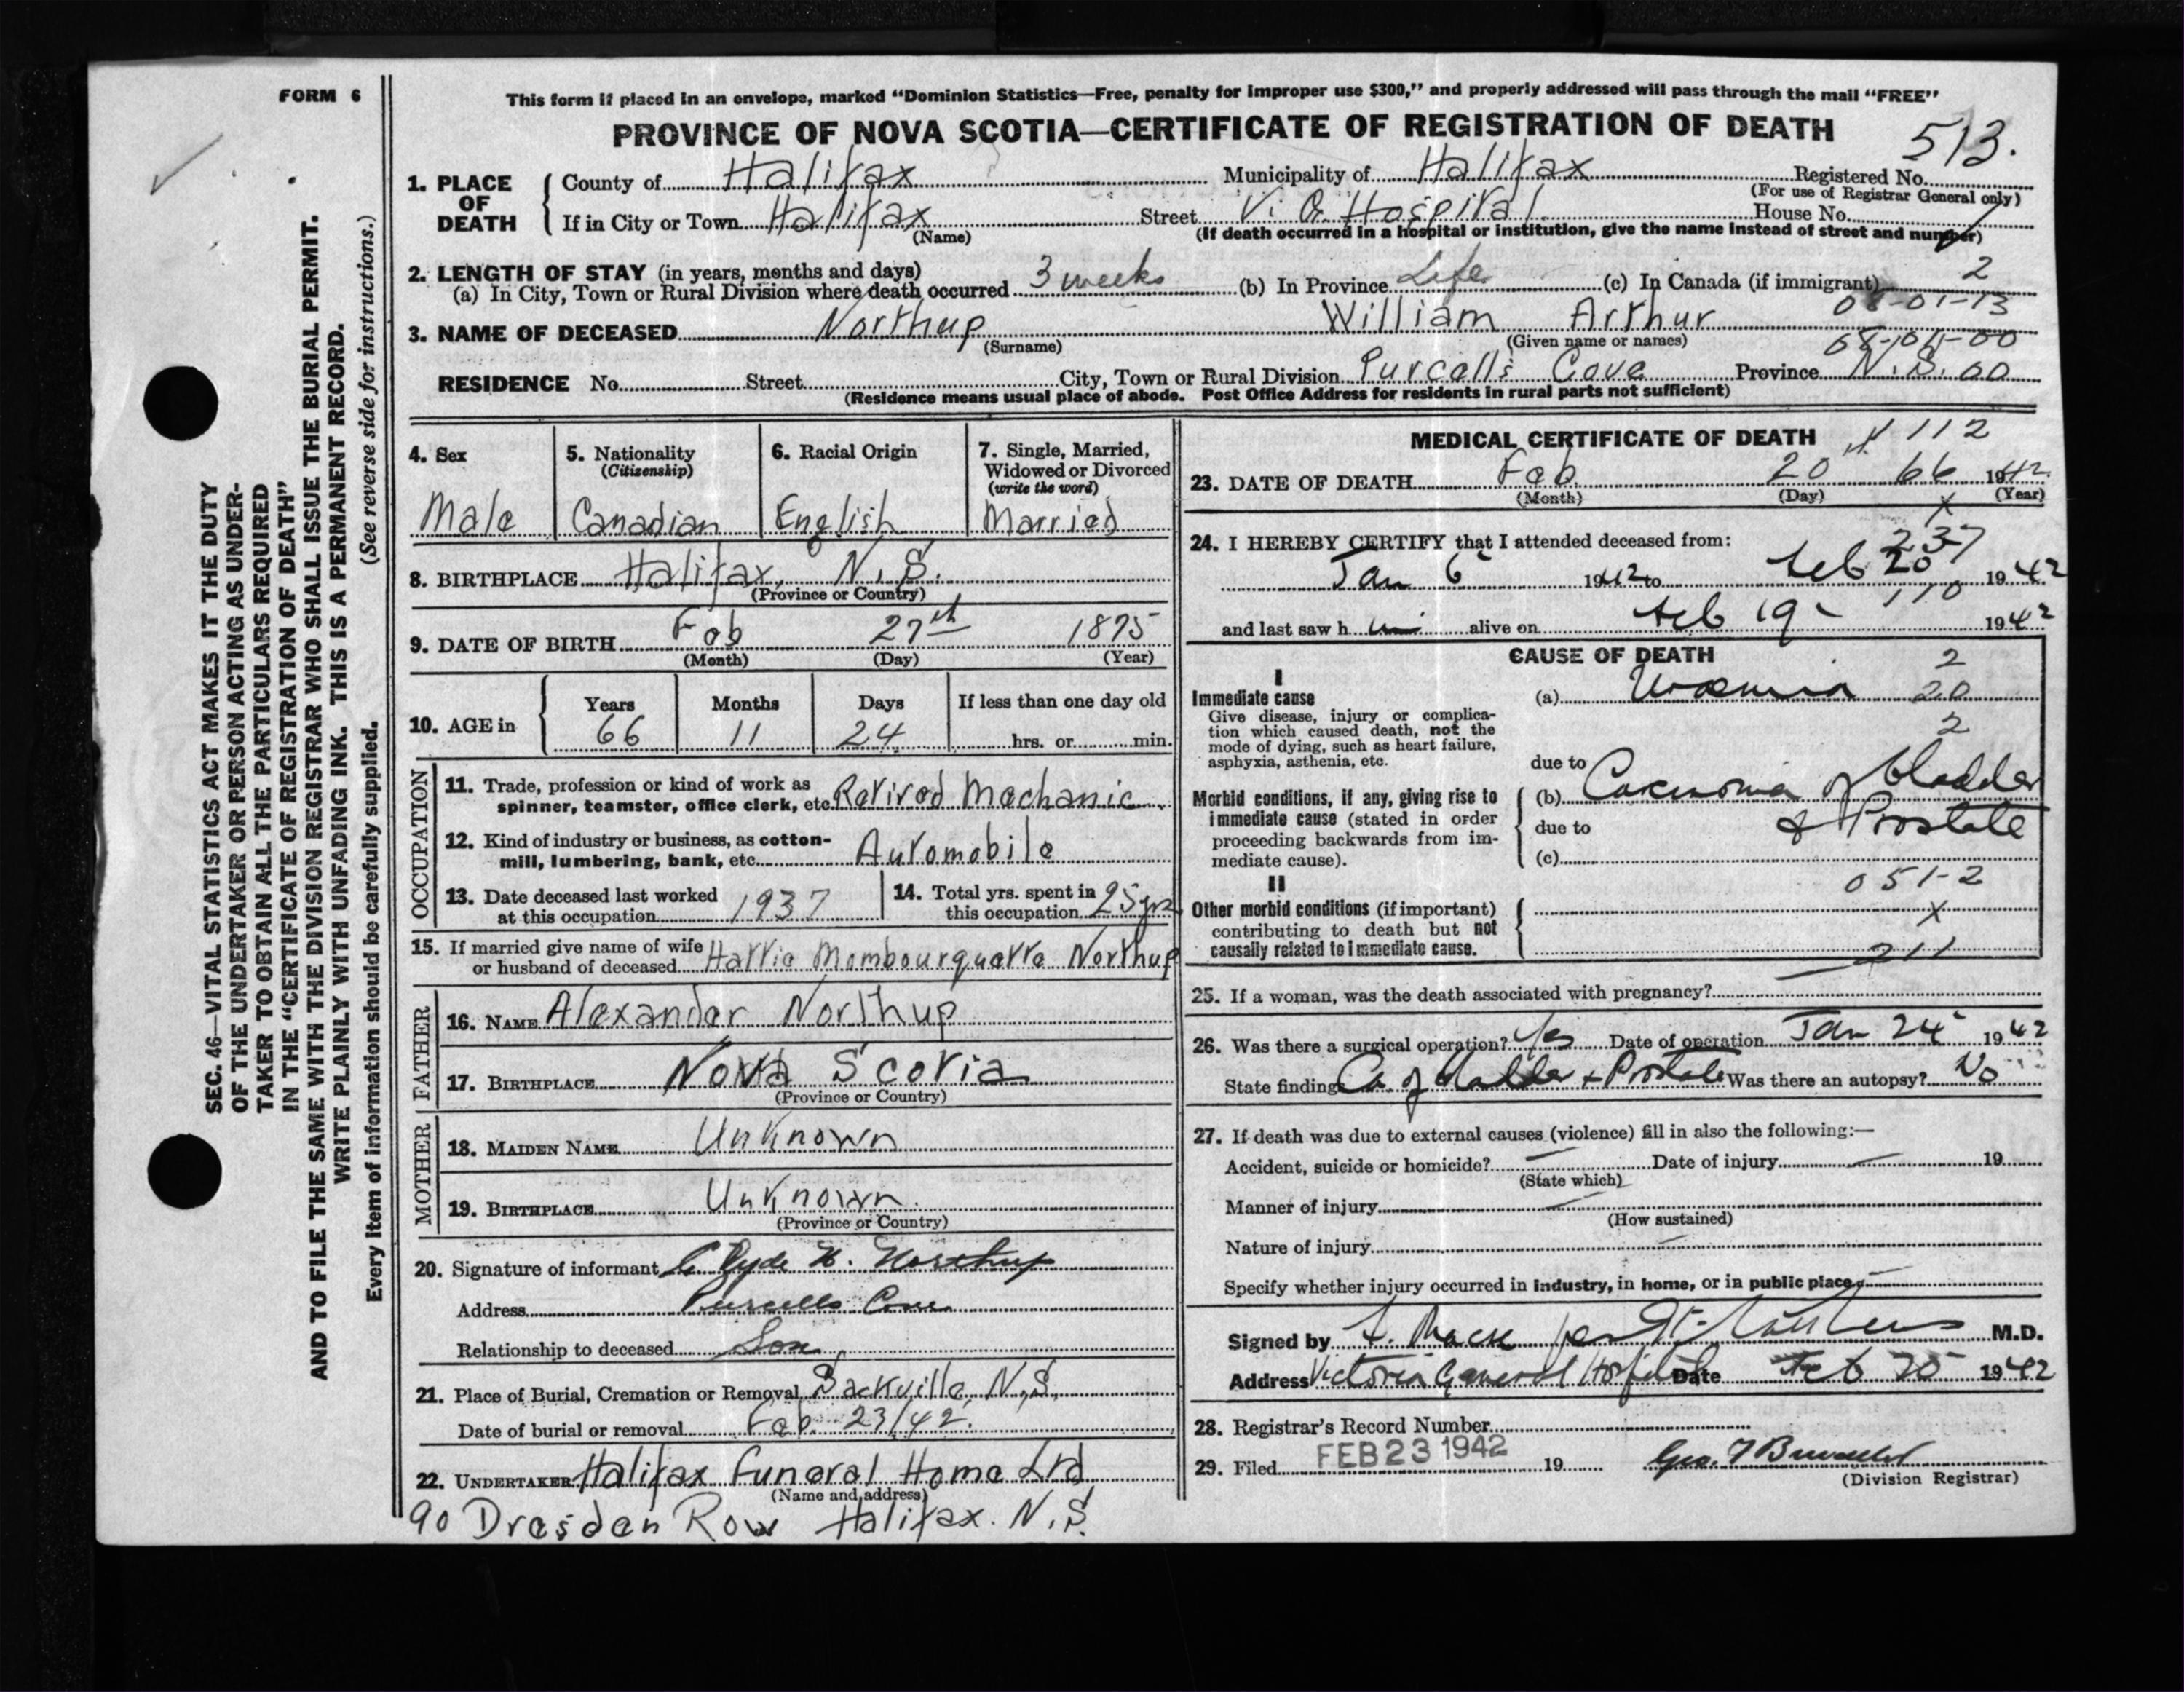 FORM 6
This form if placed in an envelope, marked "Dominion Statistics—Free, penalty for improper use $300," and properly addressed will pass through the mail "FREE"
PROVINCE OF NOVA SCOTIA—CERTIFICATE OF REGISTRATION OF DEATH
513.
1. PLACE OF DEATH
County of Halifax Municipality of Halifax Registered No.
(For use of Registrar General only)
If in City or Town Halifax Street V. G. Hospital House No.
(Name) (If death occurred in a hospital or institution, give the name instead of street and number)
2. LENGTH OF STAY (in years, months and days)
(a) In City, Town or Rural Division where death occurred 3 weeks (b) In Province Life (c) In Canada (if immigrant) 2
01-13
3. NAME OF DECEASED Northup William Arthur
(Surname) (Given name or names)
RESIDENCE No. Street City, Town or Rural Division Purcell's Cove Province N.S. 00
(Residence means usual place of abode. Post Office Address for residents in rural parts not sufficient)
4. Sex Male
5. Nationality (Citizenship) Canadian
6. Racial Origin English
7. Single, Married, Widowed or Divorced (write the word) Married
8. BIRTHPLACE Halifax, N.S.
(Province or Country)
9. DATE OF BIRTH Feb 27th 1875
(Month) (Day) (Year)
10. AGE in Years 66 Months 11 Days 24 If less than one day old hrs. or min.
OCCUPATION
11. Trade, profession or kind of work as spinner, teamster, office clerk, etc. Retired Mechanic
12. Kind of industry or business, as cotton-mill, lumbering, bank, etc. Automobile
13. Date deceased last worked at this occupation 1937
14. Total yrs. spent in this occupation 25 yrs
15. If married give name of wife or husband of deceased Hattie Mombourquette Northup
FATHER
16. NAME Alexander Northup
17. BIRTHPLACE Nova Scotia
(Province or Country)
MOTHER
18. MAIDEN NAME Unknown
19. BIRTHPLACE Unknown
(Province or Country)
20. Signature of informant Clyde W. Northup
Address Purcells Cove
Relationship to deceased Son
21. Place of Burial, Cremation or Removal Sackville, N.S.
Date of burial or removal Feb. 23/42.
22. UNDERTAKER Halifax Funeral Home Ltd
(Name and address)
90 Dresden Row Halifax. N.S.
MEDICAL CERTIFICATE OF DEATH
112
23. DATE OF DEATH Feb 20th 66 1942
(Month) (Day) (Year)
X
24. I HEREBY CERTIFY that I attended deceased from:
237
Jan 6 1942 to Feb 20 1942
110
and last saw h im alive on Feb 19 1942
CAUSE OF DEATH
2
I
Immediate cause (a) Uraemia 20
Give disease, injury or complication which caused death, not the mode of dying, such as heart failure, asphyxia, asthenia, etc.
2
due to
Morbid conditions, if any, giving rise to immediate cause (stated in order proceeding backwards from immediate cause).
(b) Carcinoma of bladder
due to & Prostate
(c)
051-2
II
Other morbid conditions (if important) contributing to death but not causally related to immediate cause.
X
211
25. If a woman, was the death associated with pregnancy?
26. Was there a surgical operation? Yes Date of operation Jan 24 1942
State findings Ca of bladder + Prostate Was there an autopsy? No
27. If death was due to external causes (violence) fill in also the following:—
Accident, suicide or homicide? — Date of injury — 19
(State which)
Manner of injury —
(How sustained)
Nature of injury —
Specify whether injury occurred in industry, in home, or in public place —
Signed by F. Mack M.D.
Address Victoria General Hospital Date Feb 20 1942
28. Registrar's Record Number
29. Filed FEB 23 1942 19
(Division Registrar)
SEC. 46—VITAL STATISTICS ACT MAKES IT THE DUTY
OF THE UNDERTAKER OR PERSON ACTING AS UNDER-
TAKER TO OBTAIN ALL THE PARTICULARS REQUIRED
IN THE "CERTIFICATE OF REGISTRATION OF DEATH"
AND TO FILE THE SAME WITH THE DIVISION REGISTRAR WHO SHALL ISSUE THE BURIAL PERMIT.
WRITE PLAINLY WITH UNFADING INK. THIS IS A PERMANENT RECORD.
Every item of information should be carefully supplied. (See reverse side for instructions.)